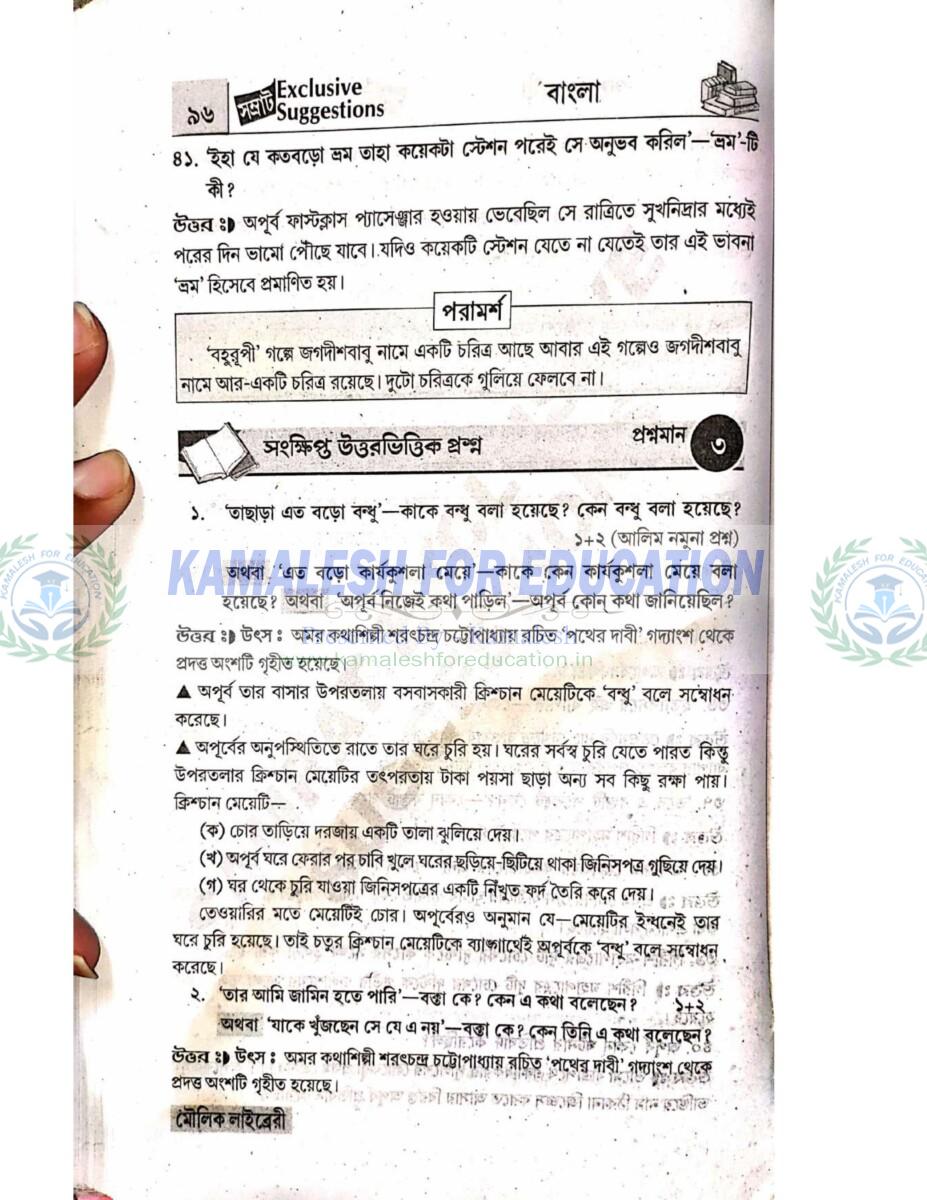 ৯৬
সম্রাট Exclusive Suggestions
বাংলা
৪১. 'ইহা যে কতবড়ো ভ্রম তাহা কয়েকটা স্টেশন পরেই সে অনুভব করিল'—'ভ্রম'-টি
কী?
উত্তর ঃ অপূর্ব ফার্স্টক্লাস প্যাসেঞ্জার হওয়ায় ভেবেছিল সে রাত্রিতে সুখনিদ্রার মধ্যেই
পরের দিন ভামো পৌঁছে যাবে। যদিও কয়েকটি স্টেশন যেতে না যেতেই তার এই ভাবনা
'ভ্রম' হিসেবে প্রমাণিত হয়।
পরামর্শ
'বহুরূপী' গল্পে জগদীশবাবু নামে একটি চরিত্র আছে আবার এই গল্পেও জগদীশবাবু
নামে আর-একটি চরিত্র রয়েছে। দুটো চরিত্রকে গুলিয়ে ফেলবে না।
সংক্ষিপ্ত উত্তরভিত্তিক প্রশ্ন
প্রশ্নমান ৩
১. 'তাছাড়া এত বড়ো বন্ধু'—কাকে বন্ধু বলা হয়েছে? কেন বন্ধু বলা হয়েছে?
১+২ (আলিম নমুনা প্রশ্ন)
KAMALESH FOR EDUCATION
অথবা 'এত বড়ো কার্যকুশলা মেয়ে'—কাকে কেন কার্যকুশলা মেয়ে বলা
হয়েছে? অথবা 'অপূর্ব নিজেই কথা পাড়িল'—অপূর্ব কোন্ কথা জানিয়েছিল?
উত্তর ঃ উৎস : অমর কথাশিল্পী শরৎচন্দ্র চট্টোপাধ্যায় রচিত 'পথের দাবী' গদ্যাংশ থেকে
প্রদত্ত অংশটি গৃহীত হয়েছে।
www.kamaleshforeducation.in
▲ অপূর্ব তার বাসার উপরতলায় বসবাসকারী ক্রিশ্চান মেয়েটিকে 'বন্ধু' বলে সম্বোধন
করেছে।
▲ অপূর্বের অনুপস্থিতিতে রাতে তার ঘরে চুরি হয়। ঘরের সর্বস্ব চুরি যেতে পারত কিন্তু
উপরতলার ক্রিশ্চান মেয়েটির তৎপরতায় টাকা পয়সা ছাড়া অন্য সব কিছু রক্ষা পায়।
ক্রিশ্চান মেয়েটি—
(ক) চোর তাড়িয়ে দরজায় একটি তালা ঝুলিয়ে দেয়।
(খ) অপূর্ব ঘরে ফেরার পর চাবি খুলে ঘরের ছড়িয়ে-ছিটিয়ে থাকা জিনিসপত্র গুছিয়ে দেয়।
(গ) ঘর থেকে চুরি যাওয়া জিনিসপত্রের একটি নিখুঁত ফর্দ তৈরি করে দেয়।
তেওয়ারির মতে মেয়েটিই চোর। অপূর্বেরও অনুমান যে—মেয়েটির ইন্ধনেই তার
ঘরে চুরি হয়েছে। তাই চতুর ক্রিশ্চান মেয়েটিকে ব্যঙ্গার্থেই অপূর্বকে 'বন্ধু' বলে সম্বোধন
করেছে।
২. 'তার আমি জামিন হতে পারি'—বক্তা কে? কেন এ কথা বলেছেন? ১+২
অথবা 'যাকে খুঁজছেন সে যে এ নয়'—বক্তা কে? কেন তিনি এ কথা বলেছেন?
উত্তর ঃ উৎস : অমর কথাশিল্পী শরৎচন্দ্র চট্টোপাধ্যায় রচিত 'পথের দাবী' গদ্যাংশ থেকে
প্রদত্ত অংশটি গৃহীত হয়েছে।
মৌলিক লাইব্রেরী